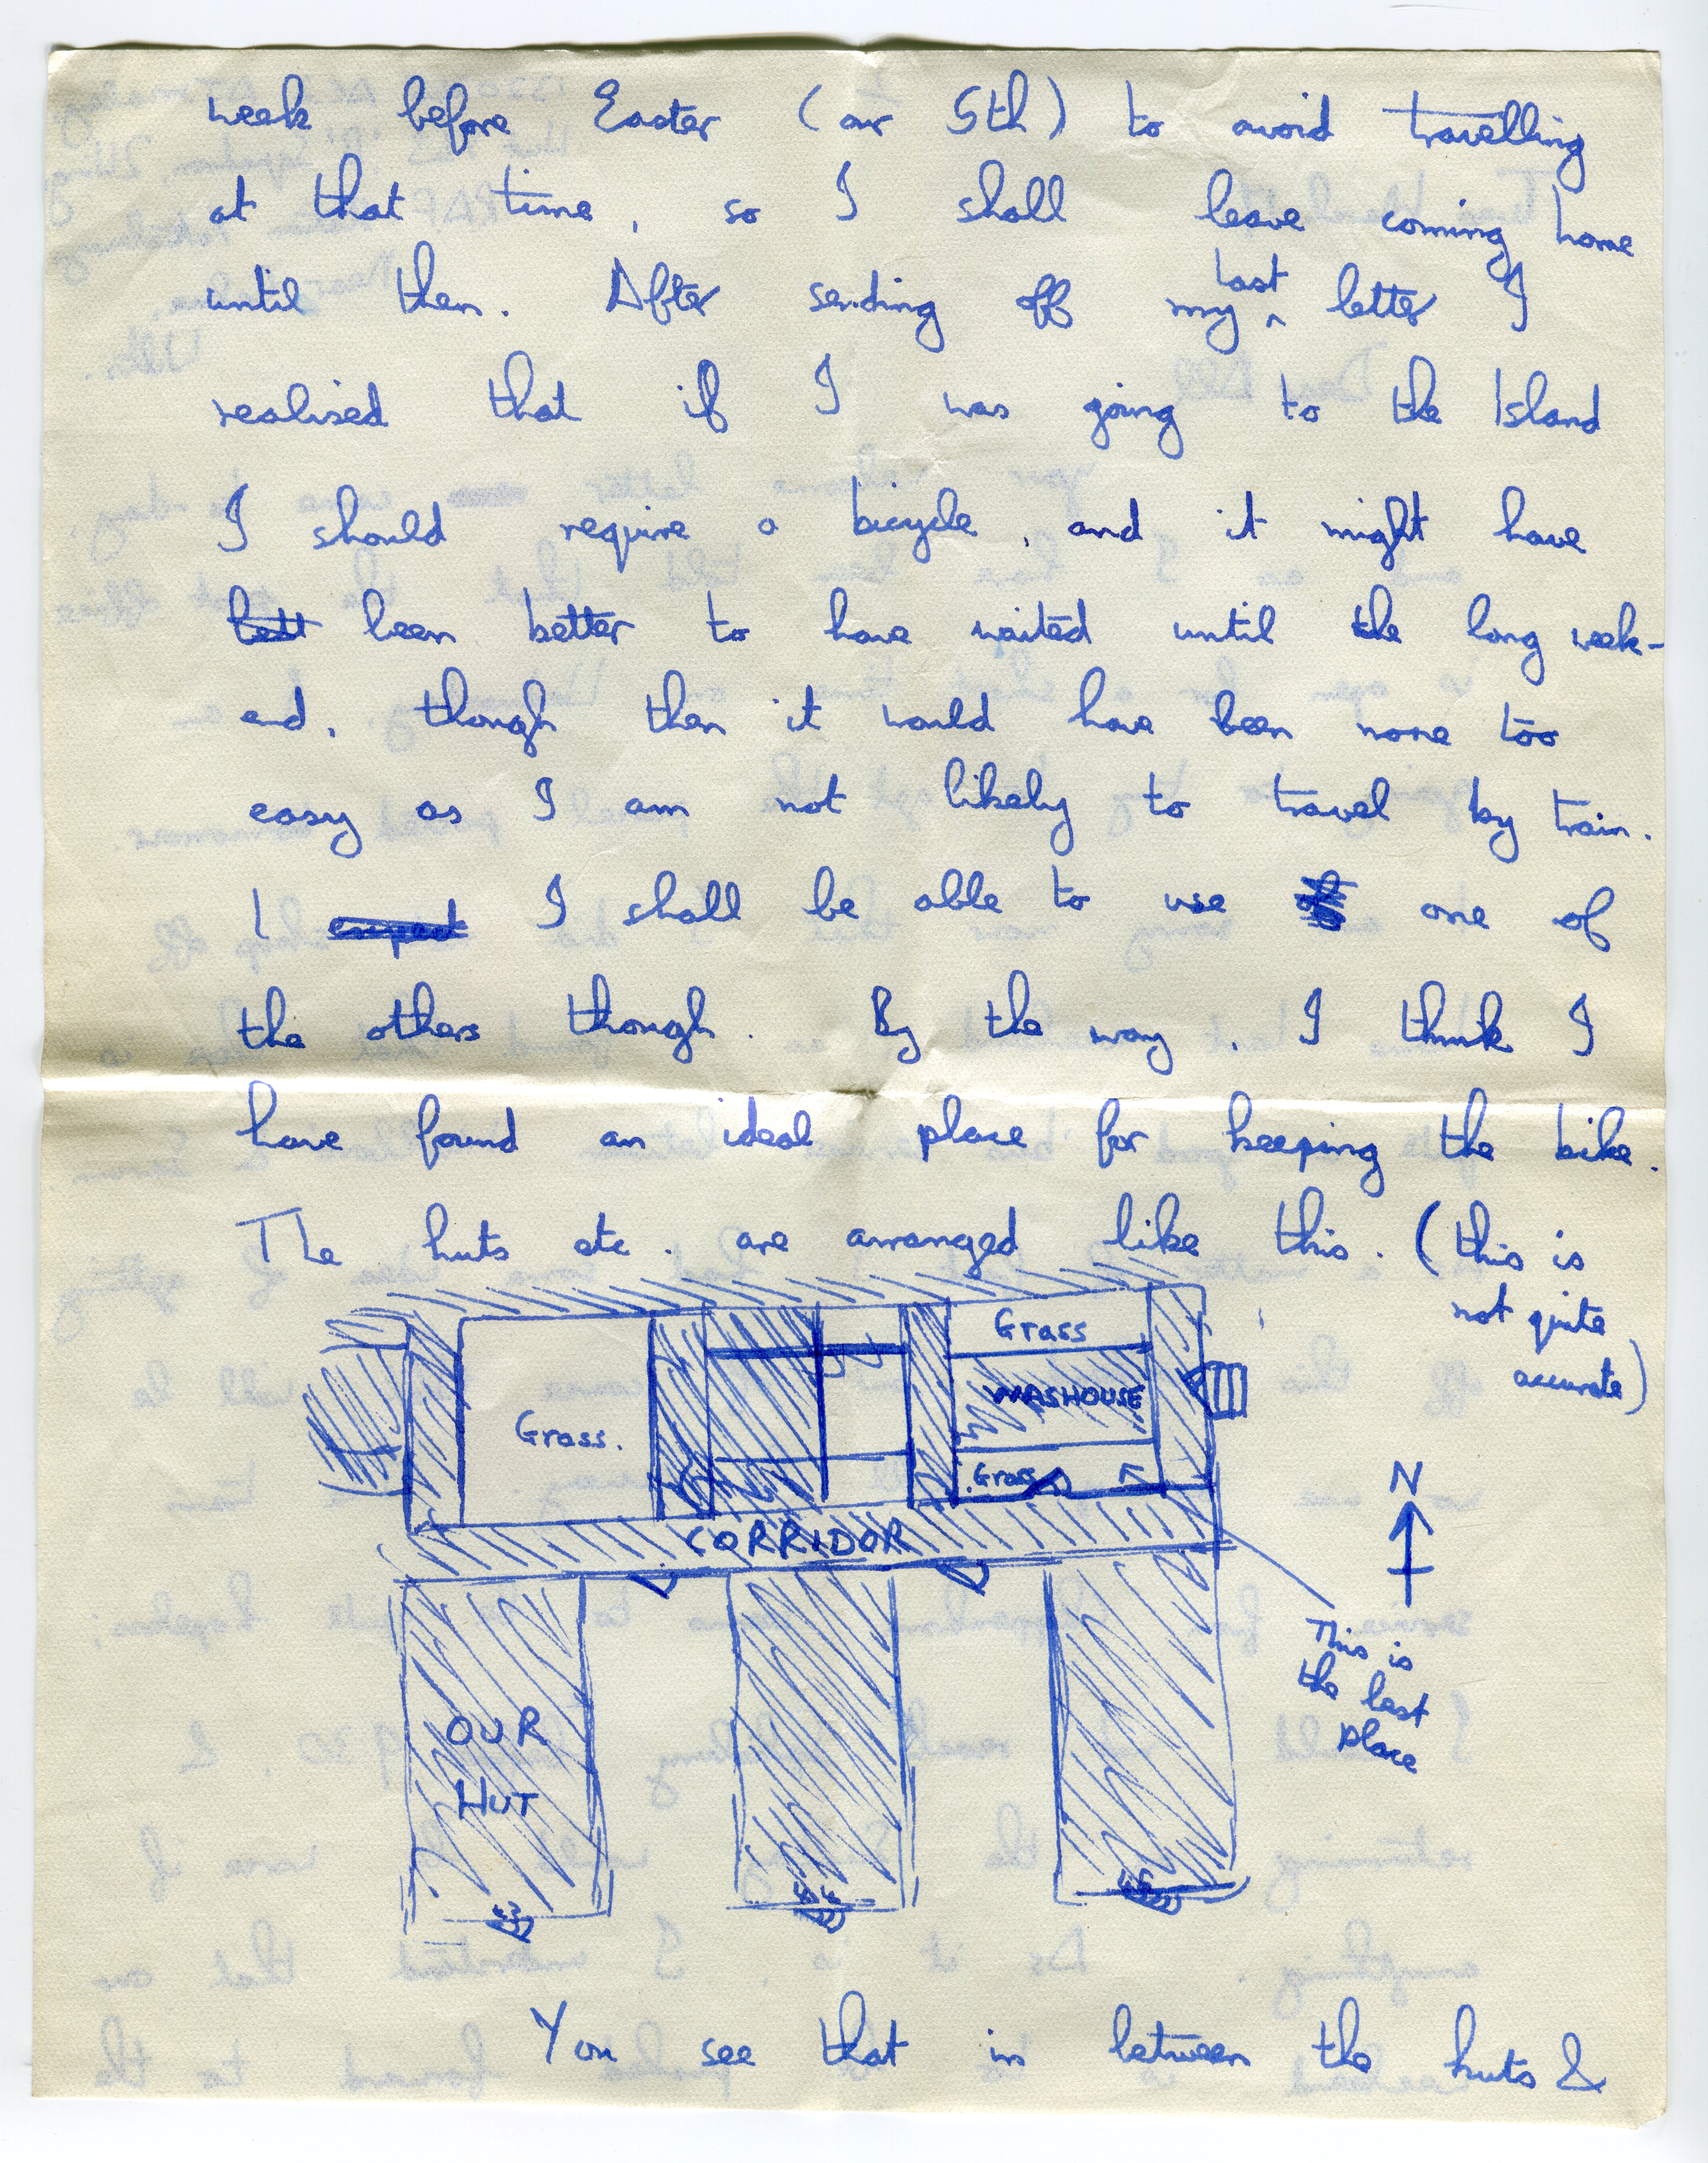 week before Easter (our 5th) to avoid travelling
at that time, so I shall leave coming home
until then. After sending off my last letter I
realised that if I was going to the Island
I should require a bicycle, and it might have
bett been better to have waited until the long week-
end, though then it would have been none too
easy as I am not likely to travel by train.
I expect I shall be able to use of one of
the others though. By the way, I think I
have found an ideal place for keeping the bike.
The huts etc. are arranged like this. (this is
not quite
accurate)
Grass
WASHOUSE
Grass.
Grass
CORRIDOR
N
This is
the last
place
OUR
HUT
43
44
45
You see that in between the huts &